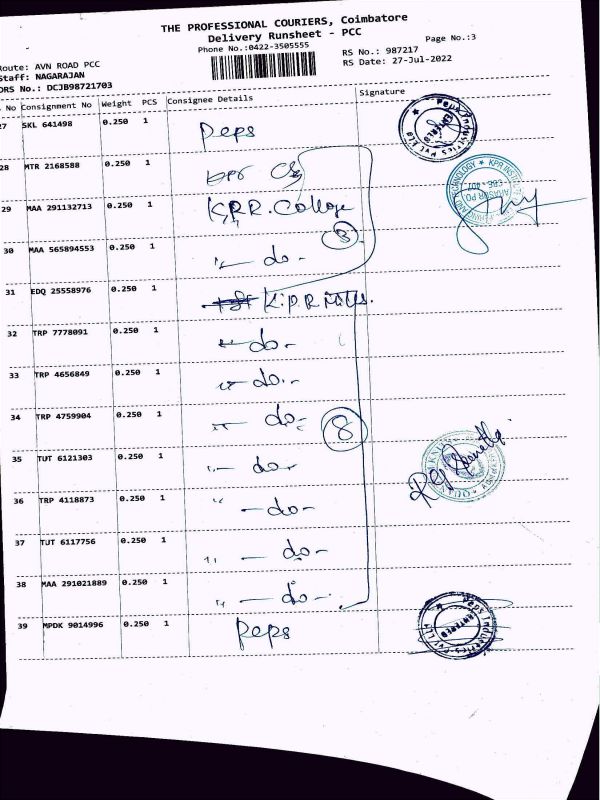 THE PROFESSIONAL COURIERS, Coimbatore
Delivery Runsheet - PCC
Phone No.:0422-3505555
Page No.:3
RS No.: 987217
RS Date: 27-Jul-2022
Route: AVN ROAD PCC
Staff: NAGARAJAN
DRS No.: DCJB98721703
No Consignment No Weight PCS Consignee Details Signature
27 SKL 641498 0.250 1 Peps
28 MTR 2168588 0.250 1 kpr
29 MAA 291132713 0.250 1 K.P.R. College
3
30 MAA 565894553 0.250 1 " - do -
31 EDQ 25558976 0.250 1 K.P.R Mills.
32 TRP 7778091 0.250 1 - do -
33 TRP 4656849 0.250 1 " - do -
34 TRP 4759904 0.250 1 " - do -
8
35 TUT 6121303 0.250 1 " - do -
36 TRP 4118873 0.250 1 " - do -
37 TUT 6117756 0.250 1 " - do -
38 MAA 291021889 0.250 1 " - do -
39 MPDK 9014996 0.250 1 Peps
Peps Industries Pvt Ltd
ENTERED
KPR INSTITUTE
TECHNOLOGY
Peps Industries Pvt Ltd
ENTERED